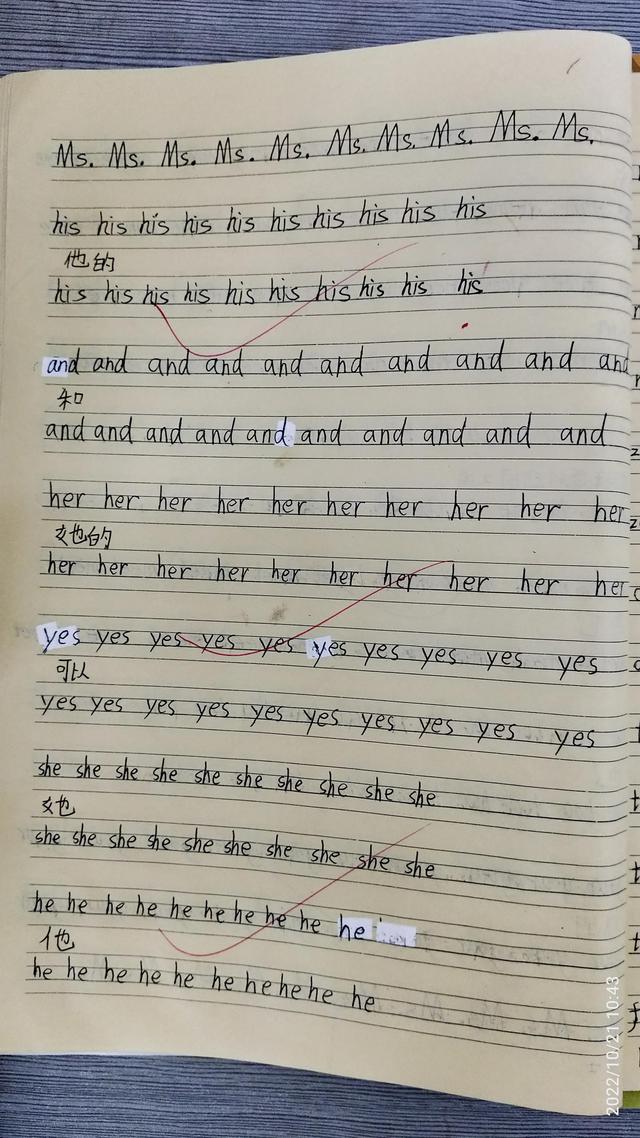 Ms. Ms. Ms. Ms. Ms. Ms. Ms. Ms. Ms. Ms.
his his his his his his his his his his
他的
his his his his his his his his his his
and and and and and and and and and and
和
and and and and and and and and and and
her her her her her her her her her her
她的
her her her her her her her her her her
yes yes yes yes yes yes yes yes yes yes
可以
yes yes yes yes yes yes yes yes yes yes
she she she she she she she she she she
她
she she she she she she she she she she
he he he he he he he he he he
他
he he he he he he he he he he
2022/10/21 10:43